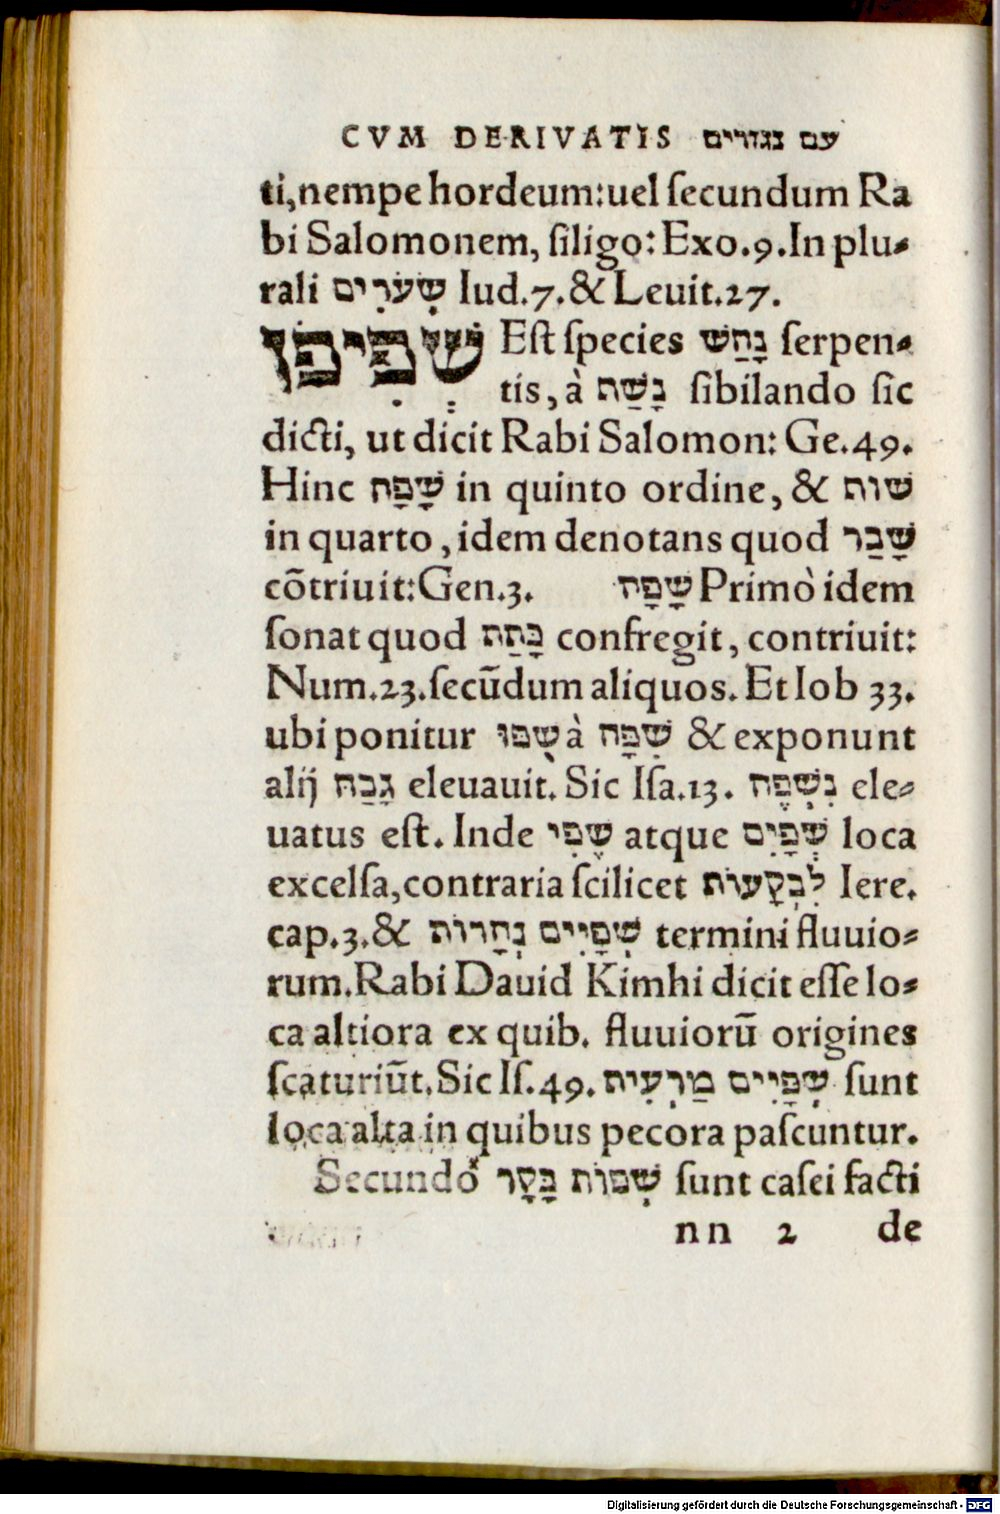 CVM DERIVATIS עם נגזרים
ti, nempe hordeum: uel ſecundum Ra
bi Salomonem, ſiligo: Exo.9. In plu⸗
rali שְׂעֹרִים Iud.7. & Leuit.27.
שְׁפִיפֹן Eſt ſpecies נָחַשׁ ſerpen⸗
tis, à נָשַׁת ſibilando ſic
dicti, ut dicit Rabi Salomon: Ge.49.
Hinc שָׁפָה in quinto ordine, & שׁוּת
in quarto, idem denotans quod שָׁבַר
cõtriuit: Gen.3. שָׁפָה Primò idem
ſonat quod כָּתַת confregit, contriuit:
Num.23. ſecũdum aliquos. Et Iob 33.
ubi ponitur שֻׁפּוּ à שִׁפָּה & exponunt
alij גָּבַהּ eleuauit. Sic Iſa.13. נִשְׁפֶּה ele⸗
uatus eſt. Inde שֶׁפִי atque שְׁפָיִם loca
excelſa, contraria ſcilicet לִבְקָעוֹת Iere.
cap.3. & שְׁפָיִים נְהָרוֹת termini fluuio⸗
rum. Rabi Dauid Kimhi dicit eſſe lo⸗
ca altiora ex quib. fluuiorũ origines
ſcaturiũt. Sic Iſ.49. שְׁפָיִים מַרְעִית ſunt
loca alta in quibus pecora paſcuntur.
Secundò שְׁפוֹת בָּקָר ſunt caſei facti
nn 2 de
Digitalisierung gefördert durch die Deutsche Forschungsgemeinschaft - DFG